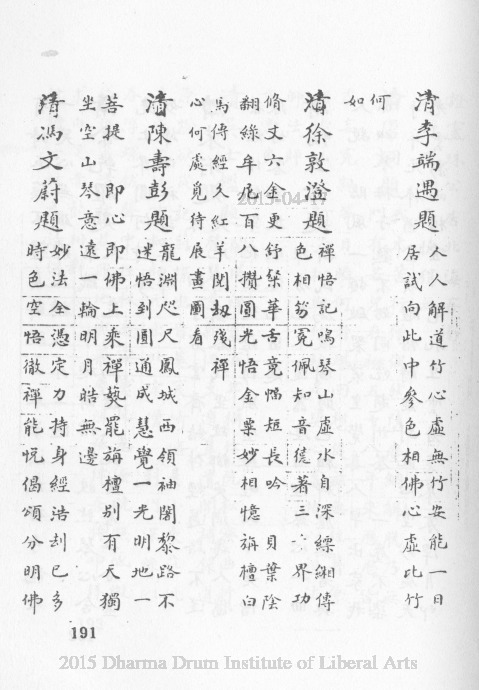 清李端遇題 人人解道竹心虛無竹安能一日
居試向此中參色相佛心虛比竹
何
如
清徐敦澄題 禪悟記鳴琴山虛水自深縹緗傳
色相冕佩知音著三界功
脩丈六金更紓縈華舌竟幅短長吟 貝葉陰
翻綠牟尼百八攢圓光悟金粟妙相憶旃檀白
馬傳經久紅羊閱劫殘禪
心何處覓待展畫圖看
清陳壽彭題 龍淵咫尺鳳城西領袖闍黎路不
迷悟到圓通成慧覺一光明地一
菩提 即心即佛上乘禪爇罷旃檀別有天獨
坐空山琴意遠一輪明月皓無邊
清馮文蔚題 妙法全憑定力持身經浩刦已多
時色空悟徹禪能悅偈頌分明佛
191
2015 Dharma Drum Institute of Liberal Arts